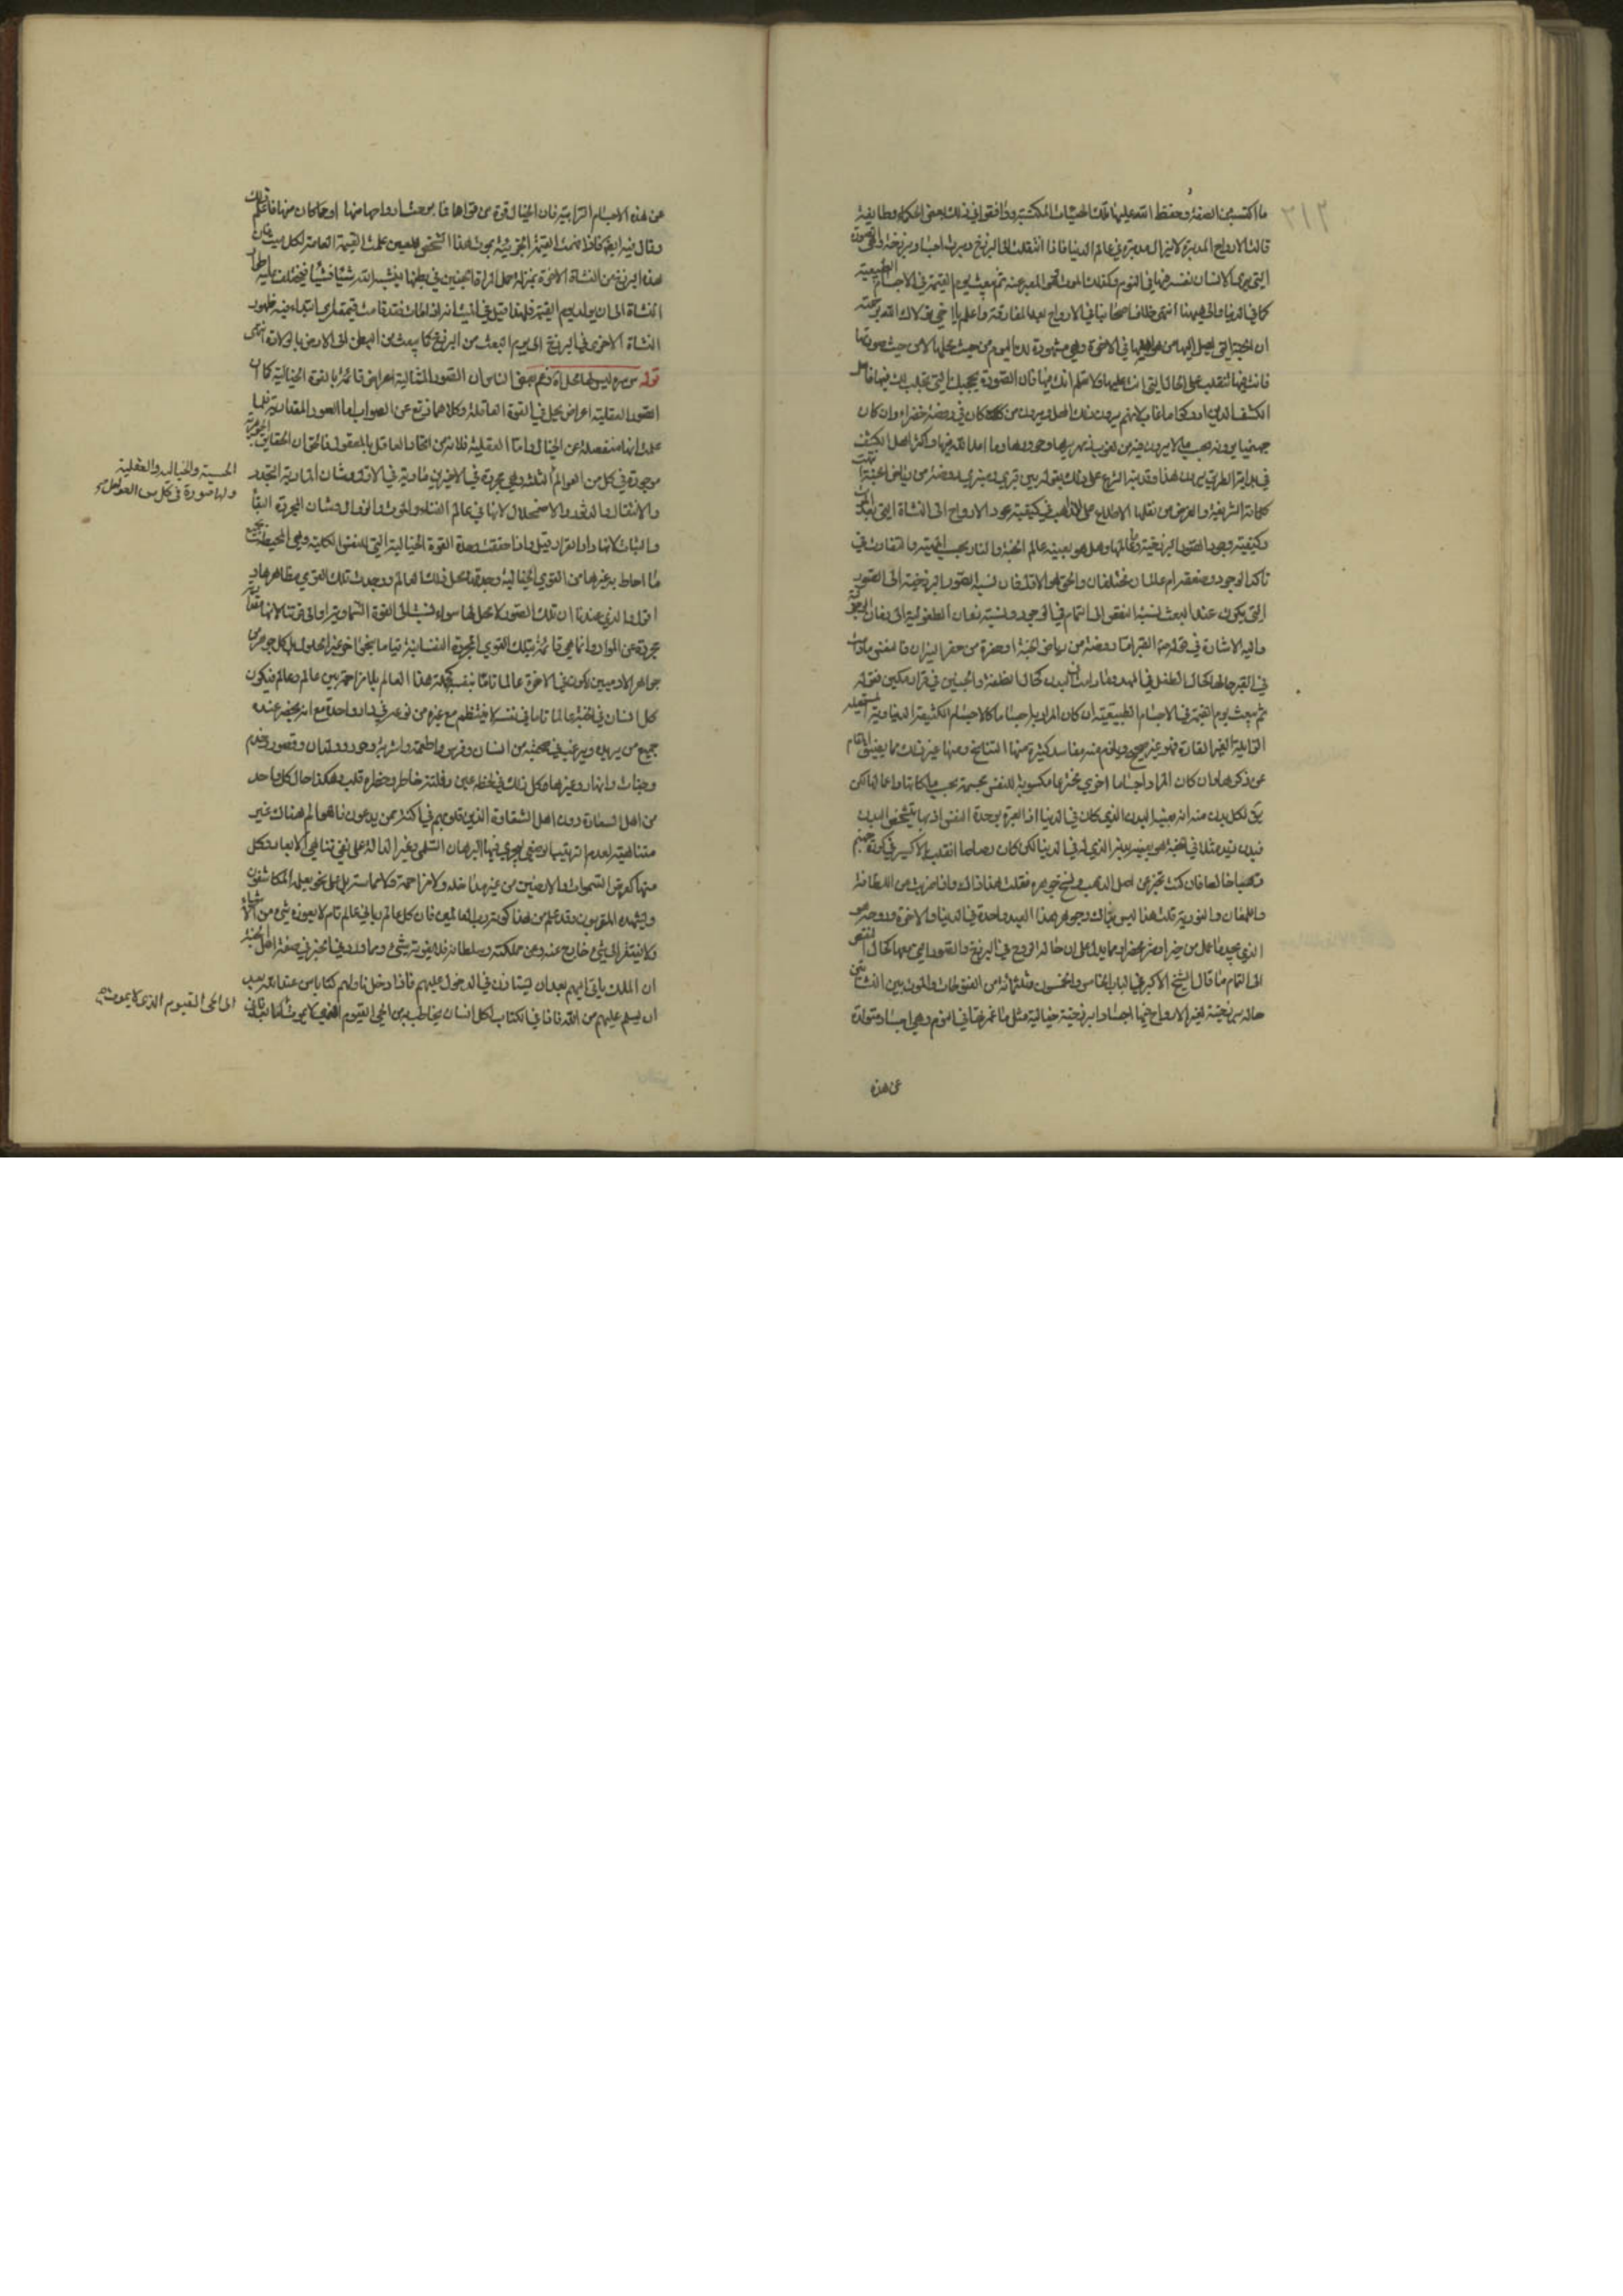 ما اكتسب من الصفة وحفظ الله عليها تلك الهيئات المكتسبة ووافقوا في ذلك بعض الحكماء وطايفة
قالت الارواح المدبرة لا تزال مدبرة في عالم الدنيا فاذا انتقلت الى البرزخ دبرت اجسادا برزخية وهي الصورة
التي يرى الانسان نفسه فيها في النوم وكذلك الموت وهو المعبر عنه ثم يبعث يوم القيمة في الاجسام الطبيعية
كما في الدنيا والى هيهنا انتهى خلاف اصحابنا في الارواح بعد المفارقة واعلم يا اخي تولاك الله برحمته
ان الجنة التي يصل اليها من هو اهلها في الاخرة وهي مشهودة لك اليوم من حيث محلها لا من حيث صورتها
فانت فيها تتقلب على الحال التي انت عليها ولا تعلم انك فيها فان الصورة تحجبك التي تجلت لك فيها فاهل
الكشف الذين ادركوا ما غاب لانهم يرون ذلك المحل ويرون من كان في روضة خضراء وان كان
جهنميا يرونه بحسب ما لا يرون فيه من نعوت زمهريرها وحرورها وما اعد الله فيها واكثر اهل الكشف
في بداية الطريق يرون هذا وقد نبه الشرع على ذلك بقوله بين قبري ومنبري روضة من رياض الجنة انتهت
كلماته الشريفة والغرض من نقلها الاطلاع على المذاهب في كيفية عود الارواح الى النشاة التي بعد الموت
وكيفية وجود الصور البرزخية وعالمها وهل هو بعينه عالم الجنة والنار بحسب الحقيقة والتفاوت في
تاكد الوجود وضعفه ام عالمان مختلفان والحق هو الاول فان نسبة الصور البرزخية الى الصور
التي يكون عند البعث نسبة النقص الى التمام في الوجود ونسبة زمان الطفولية الى زمان الرجولية
واليه الاشارة في قوله ص القبر اما روضة من رياض الجنة او حفرة من حفر النيران فالنفس مادامت
في القبر حالها كحال الطفل في المهد ومادامت في البدن كحال النطفة والجنين في قرار مكين فقوله
ثم يبعث يوم القيمة في الاجسام الطبيعية ان كان المراد بها جساما كالاجسام الكثيفة الدنياوية المستحيلة
القابلة الغير القارة فهو غير صحيح ويلزم منه مفاسد كثيرة منها التناسخ ومنها غير ذلك مما يضيق المقام
عن ذكرها وان كان المراد اجساما اخرى مكسوبة للنفس مجسمة بحسب ملكاتها واعمالها لكن
يق لكل بدن منه انه بعينه البدن الذي كان في الدنيا اذ العبرة بوحدة النفس اذ بها يتشخص البدن
فبدن زيد مثلا في الجنة هو بعينه بدنه الذي له في الدنيا لكن كان
ذهبا خالصا فان كنت
واللمعان والنورية قلت هذا ليس بذاك وجوهر هذا العبد واحدة في الدنيا والاخرة وروحه هو
الذي يجد ما عمل من خير او شر محضرا ومما يدل على ان حالة الروح في البرزخ والصور التي معها كحال النقص
الى التمام ما قال الشيخ الاكبر في الباب الخامس والخمسون وثلثمائة من الفتوحات والموت بين النشأتين
حالة برزخية تعمر الارواح فيها اجسادا برزخية خيالية مثل ما عمرتها في النوم وهي اجساد متولدة
عن هذه
عن هذه الاجسام الترابية فان الخيال قوة من قواها فما برحت ارواحها منها او مما كان منها فاعلم ذلك
وقال فيه ايضا فاذا قامت القيمة الجزئية بموت هذا الشخص المعين علمت القيمة العامة لكل ميت كان
هذه البرزخ من النشاة الاخرة بمنزلة حمل المرأة الجنين في بطنها ينشئه الله شيئا فشيئا فيختلف عليه اطوار
النشاة الى ان يولد يوم القيمة فلهذا قيل في الميت انه اذا مات فقد قامت قيمته اي ابتداء فيه ظهور
النشاة الاخرى في البرزخ الى يوم البعث من البرزخ كما يبعث من البطن الى الارض بالولادة انتهى
قوله س سره ليس لها محل اه زعم بعض الناس ان الصور المثالية اعراض قائمة بالقوة الخيالية كما ان
الصور العقلية اعراض يحل في القوة العاقلة وكلاهما زيغ عن الصواب اما الصور المقدارية فلما
علمت انها منفصلة عن الخيال واما العقلية فلما مر من اتحاد العاقل بالمعقول فالحق ان الحقايق الجوهرية
موجودة في كل من العوالم الثلثة وهي مجردة في الاخيرين مادية في الاول وشان المادية التجدد
والانتقال والدثور والاضمحلال لانها في عالم الفناء والموت والزوال وشان المجردة البقاء
والثبات لانها دار القرار قيل واذا حققت وحدة القوة الخيالية التي للنفس الكلية وهي المحيطة بجميع
ما احاط به غيرها من القوى الخيالية وجدتها محل ذلك العالم ووجدت تلك القوى مظاهرها
اقول والذي عندنا ان تلك الصور لا محل لها سواء نسبت الى القوة السماوية او الى قوتنا لانها
مجردة عن المواد وانما هي قائمة بتلك القوى المجردة النفسانية قياما بنحو اخر غير الحلول بل كل جوهر من
جواهر الادميين يكون في الاخرة عالما تاما بنفسه كجملة هذا العالم بلا مزاحمة بين عالم وعالم فيكون
كل انسان في الجنة عالما تاما في نفسه لا ينتظم مع غيره من نوعه في دار واحدة مع انه يحضر عنده
جميع من يريده ويرغب في صحبته من انسان وفرس واطعمة واشربة وحور وولدان وقصور وخدم
وجنات وانهار وغيرها وكل ذلك في لحظة عين وفلتة خاطر وخطرة قلب وهكذا حال كل واحد
من اهل السعادة دون اهل الشقاوة الذين قلوبهم في اكنة ممن يدعون فالعوالم هناك غير
متناهية لعدم الترتيب الوضعي ليجري فيها البرهان السلمي وغير الدالة على نفي تناهي الابعاد فكل
منها كعرض السموات والارضين من غير تداخل ولا مزاحمة ولا مماسة بل على نحو يعلمه المكاشفون
ويشهده المقربون وقد علم من هذا كونه رب العالمين فان كل عالم رباني عالم تام لا يعوزه شيء من الاشياء
ولا يفتقر الى شيء خارج عنه وعن مملكته وسلطانه فلا يفوته شيء ومما ورد في الخبر في صفة اهل الجنة
ان الملك ياتي اليهم بعد ان يستاذن في الدخول عليهم فاذا دخل ناولهم كتابا من عند الله بعد
ان يسلم عليهم من الله فاذا في الكتاب لكل انسان يخاطب به من الحي القيوم الذي لا يموت
الحسية والخيالية والعقلية
ولها صورة في كل من العوالم
الى الحي القيوم الذي لا يموت صح